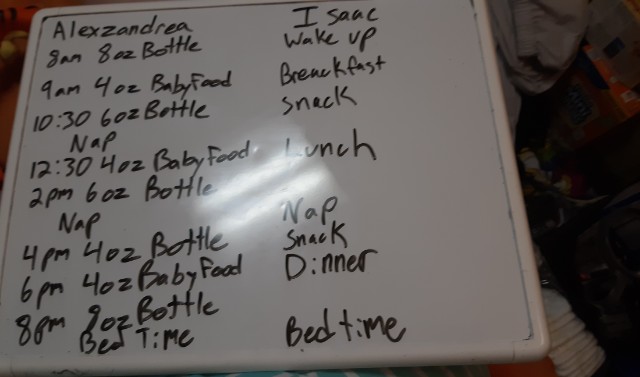 Alexzandrea Isaac
8am 8oz Bottle Wake up
9am 4oz Baby Food Breackfast
10:30 6oz Bottle Snack
Nap
12:30 4oz Baby Food Lunch
2pm 6oz Bottle
Nap Nap
4pm 4oz Bottle Snack
6pm 4oz Baby Food Dinner
8pm 8oz Bottle
Bed Time Bedtime